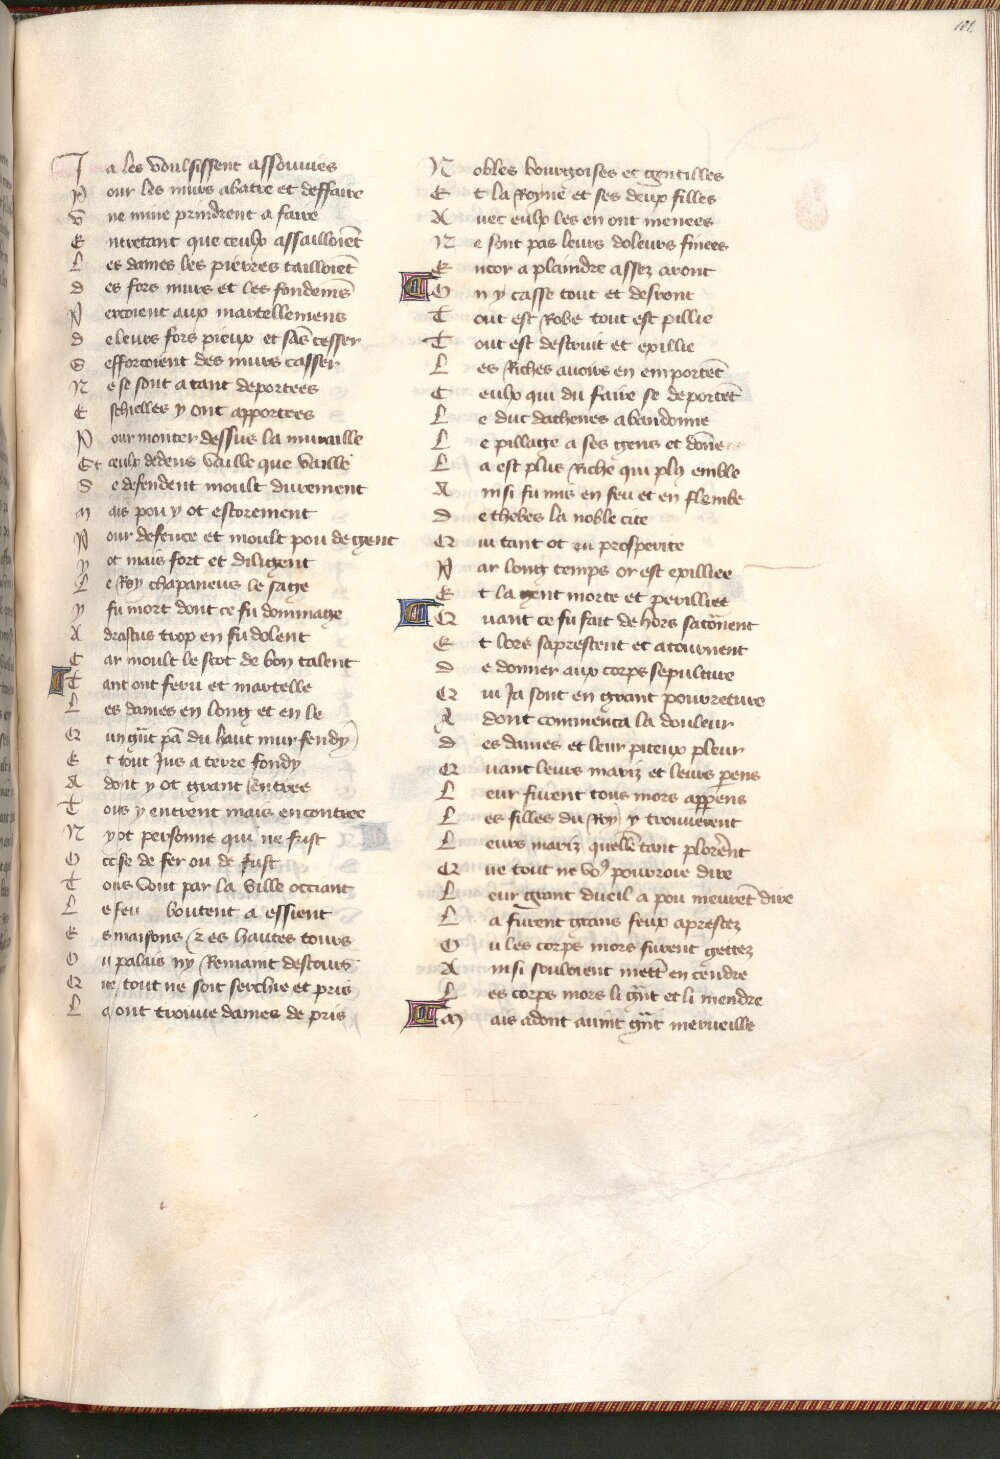 101.
Ja les voulsissent assouuies
Pour les murs abatre et deffaire
Vne mine prindrent a faire
Entretant que ceulx assailloiēt
Les dames les pierres tailloiēt
des fors murs et les fondemēs
Percoient aux martellemens
de leurs fors pieux et sās cesser
Sefforcoient des murs casser
Ne se sont atant deportees
Eschielles y ont apportees
Pour monter dessus la muraille
Et ceulx dedens vaille que vaille
Se defendent moult durement
Mais pou y ot estorement
Pour defence et moult pou de gent
y ot mais fort et diligent
Le Roy chapaneus le sage
y fu mort dont ce fu dommage
Adrastus trop en fu dolent
Car moult le scot de bon talent
Tant ont feru et martelle
Les dames en long et en le
Qun gūt pā du hault mur fendy
Et tout Jus a terre fondy
Adont y ot grant Entree
Tous y entrent mais encontree
Ny ot personne qui ne fust
Occise de fer ou de fust
Tous vont par la ville occiant
Le feu boutent a essient
Es maisons z es haultes tours
Ou palais ny Remaint destours
Que tout ne soit serchie et pris
La ont trouue dames de pris
Nobles bourgoises et gentilles
Et la Royne et ses deux filles
Auec eulx les en ont menees
Ne sont pas leurs doleurs finees
Encor a plaindre assez aront
On y casse tout et desront
Tout est Robe tout est pillie
Tout est destruit et exillie
Les Riches auoirs en emportēt
Ceulx qui du faire se deportēt
Le duc dathenes abandonne
Le pillage a ses gens et dōne
La est plus Riche qui plꝯ emble
Ainsi fu mis en feu et en flembe
de thebes la noble cite
Qui tant ot eu prosperite
Par long temps or est exilliee
Et la gent morte et perilliee
Quant ce fu fait dehors satōnent
Et lors saprestent et atournent
de donner aux corps sepulture
Qui Ja sont en grant pourreture
Adont commenca la douleur
des dames et leur piteux pleur
Quant leurs mariz et leurs parens
Leur furent tous mors apparens
Les filles du Roy y trouuerent
Leurs mariz quelle tant plorēnt
Que tout ne voꝯ pourroie dire
Leur grant dueil a pou meurēt dire
La furent grans feux aprestez
Ou les corps mors furent gettez
Ainsi souloient mettr̄ en cendre
Les corps mors li gūt et li mendre
Mais adont auint gūt merueille